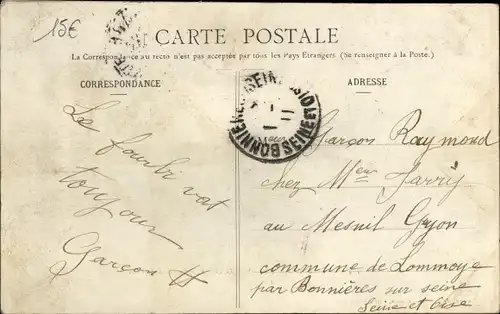 15€
CARTE POSTALE
La Correspondance au recto n'est pas acceptée par tous les Pays Etrangers (Se renseigner à la Poste.)
CORRESPONDANCE
ADRESSE
BONNIERES SEINE ET OISE
Le fourbi vat
toujour
Garçon H
Garçon Raymond
chez Meur Jarry
au Mesnil Gyon
commune de Lommoye
par Bonnières sur seine
Seine et Oise